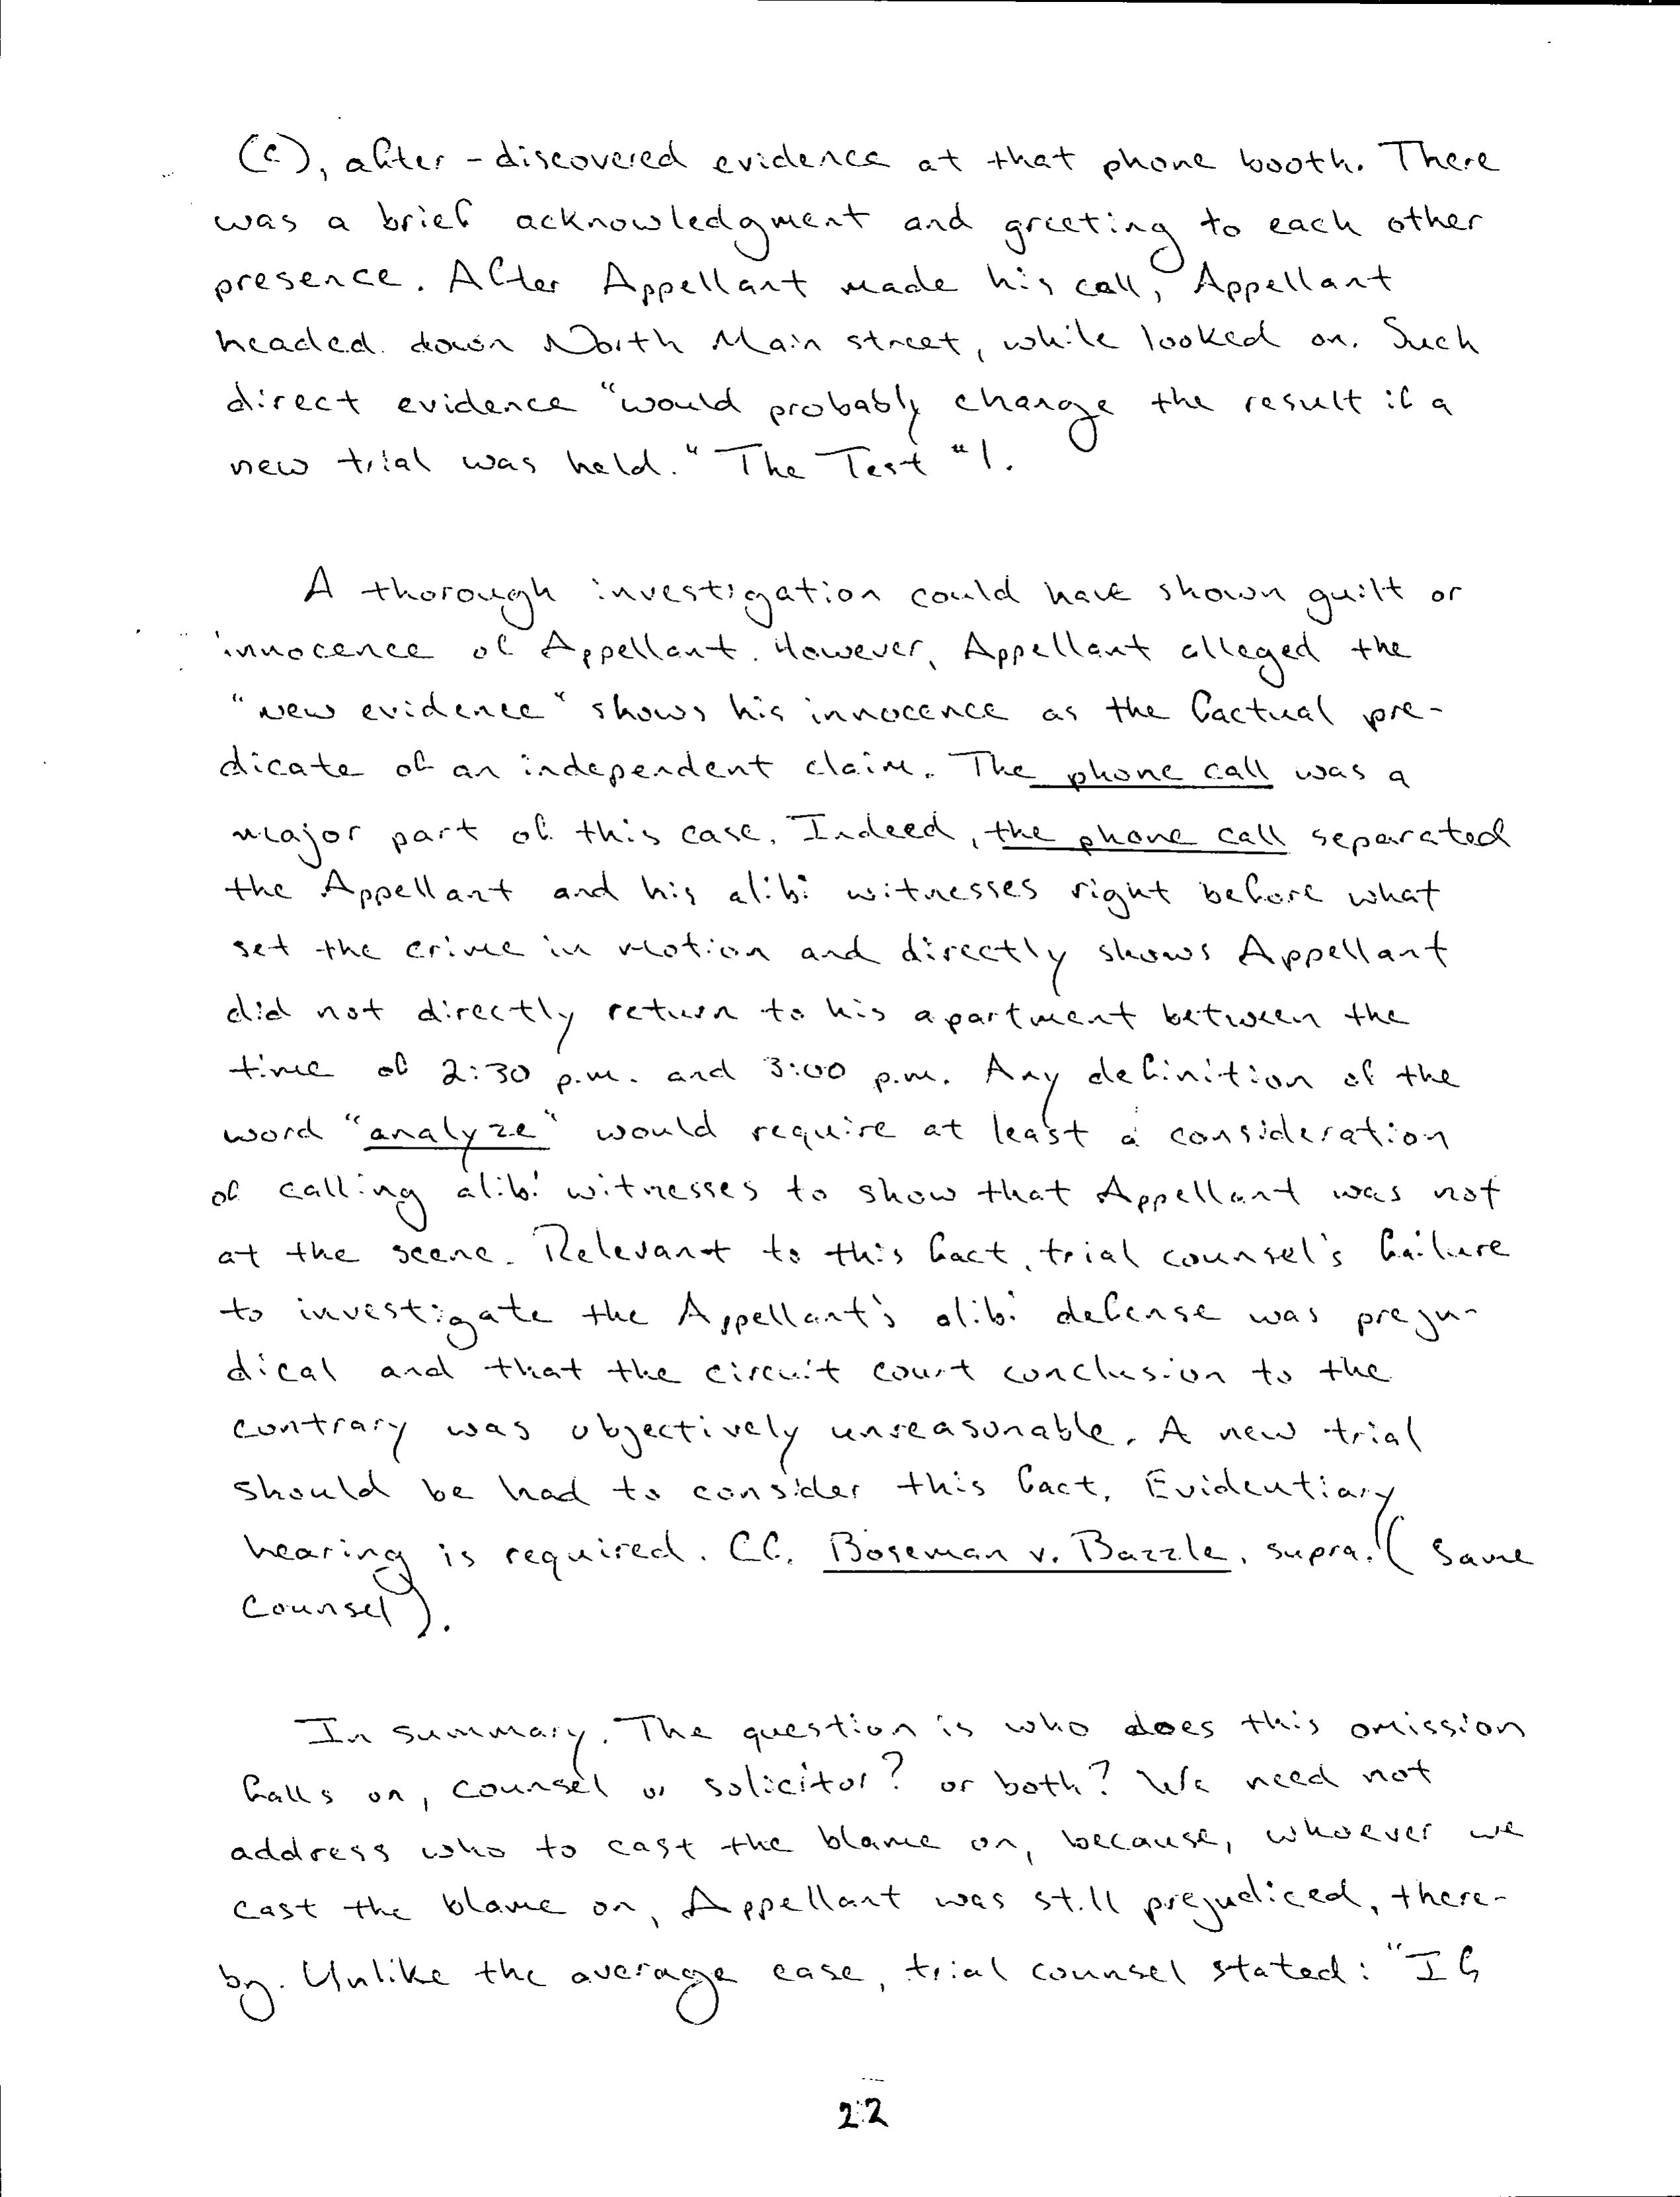 (c), after-discovered evidence at that phone booth. There
was a brief acknowledgment and greeting to each other
presence. After Appellant made his call, Appellant
headed down North Main street, while looked on. Such
direct evidence "would probably change the result if a
new trial was held." The Test "1.
A thorough investigation could have shown guilt or
innocence of Appellant. However, Appellant alleged the
"new evidence" shows his innocence as the factual pre-
dicate of an independent claim. The phone call was a
major part of this case. Indeed, the phone call separated
the Appellant and his alibi witnesses right before what
set the crime in motion and directly shows Appellant
did not directly return to his apartment between the
time of 2:30 p.m. and 3:00 p.m. Any definition of the
word "analyze" would require at least a consideration
of calling alibi witnesses to show that Appellant was not
at the scene. Relevant to this fact, trial counsel's failure
to investigate the Appellant's alibi defense was preju-
dical and that the circuit court conclusion to the
contrary was objectively unreasonable. A new trial
should be had to consider this fact. Evidentiary
hearing is required. Cf. Boseman v. Bazzle, supra. (Same
Counsel).
In summary. The question is who does this omission
falls on, counsel or solicitor? or both? We need not
address who to cast the blame on, because, whoever we
cast the blame on, Appellant was still prejudiced, there-
by. Unlike the average case, trial counsel stated: "If
22